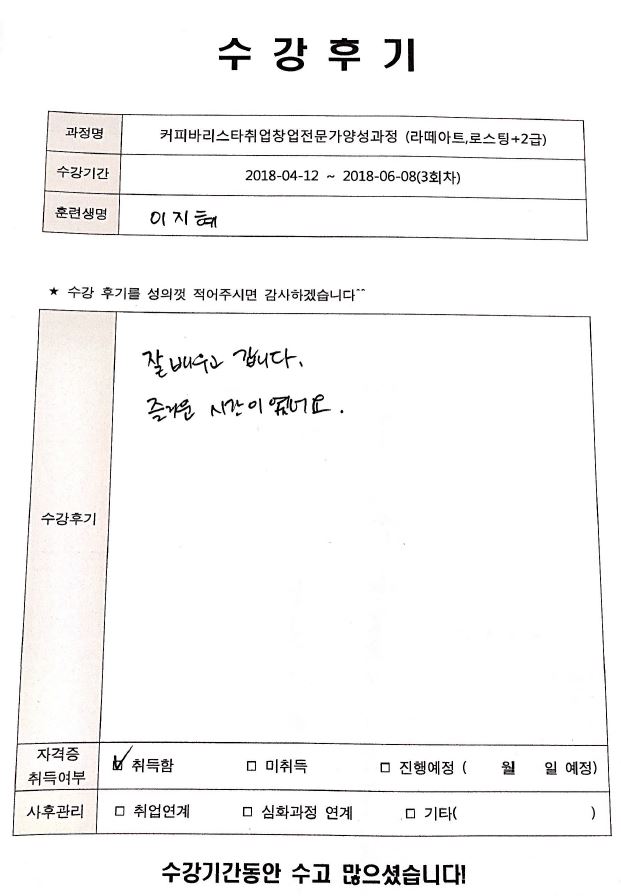 수강후기
과정명 커피바리스타취업창업전문가양성과정 (라떼아트,로스팅+2급)
수강기간 2018-04-12 ~ 2018-06-08(3회차)
훈련생명 이지혜
★ 수강 후기를 성의껏 적어주시면 감사하겠습니다^^
잘 배우고 갑니다.
즐거운 시간이였어요.
수강후기
자격증
취득여부 ☑ 취득함 □ 미취득 □ 진행예정 ( 월 일 예정)
사후관리 □ 취업연계 □ 심화과정 연계 □ 기타( )
수강기간동안 수고 많으셨습니다!